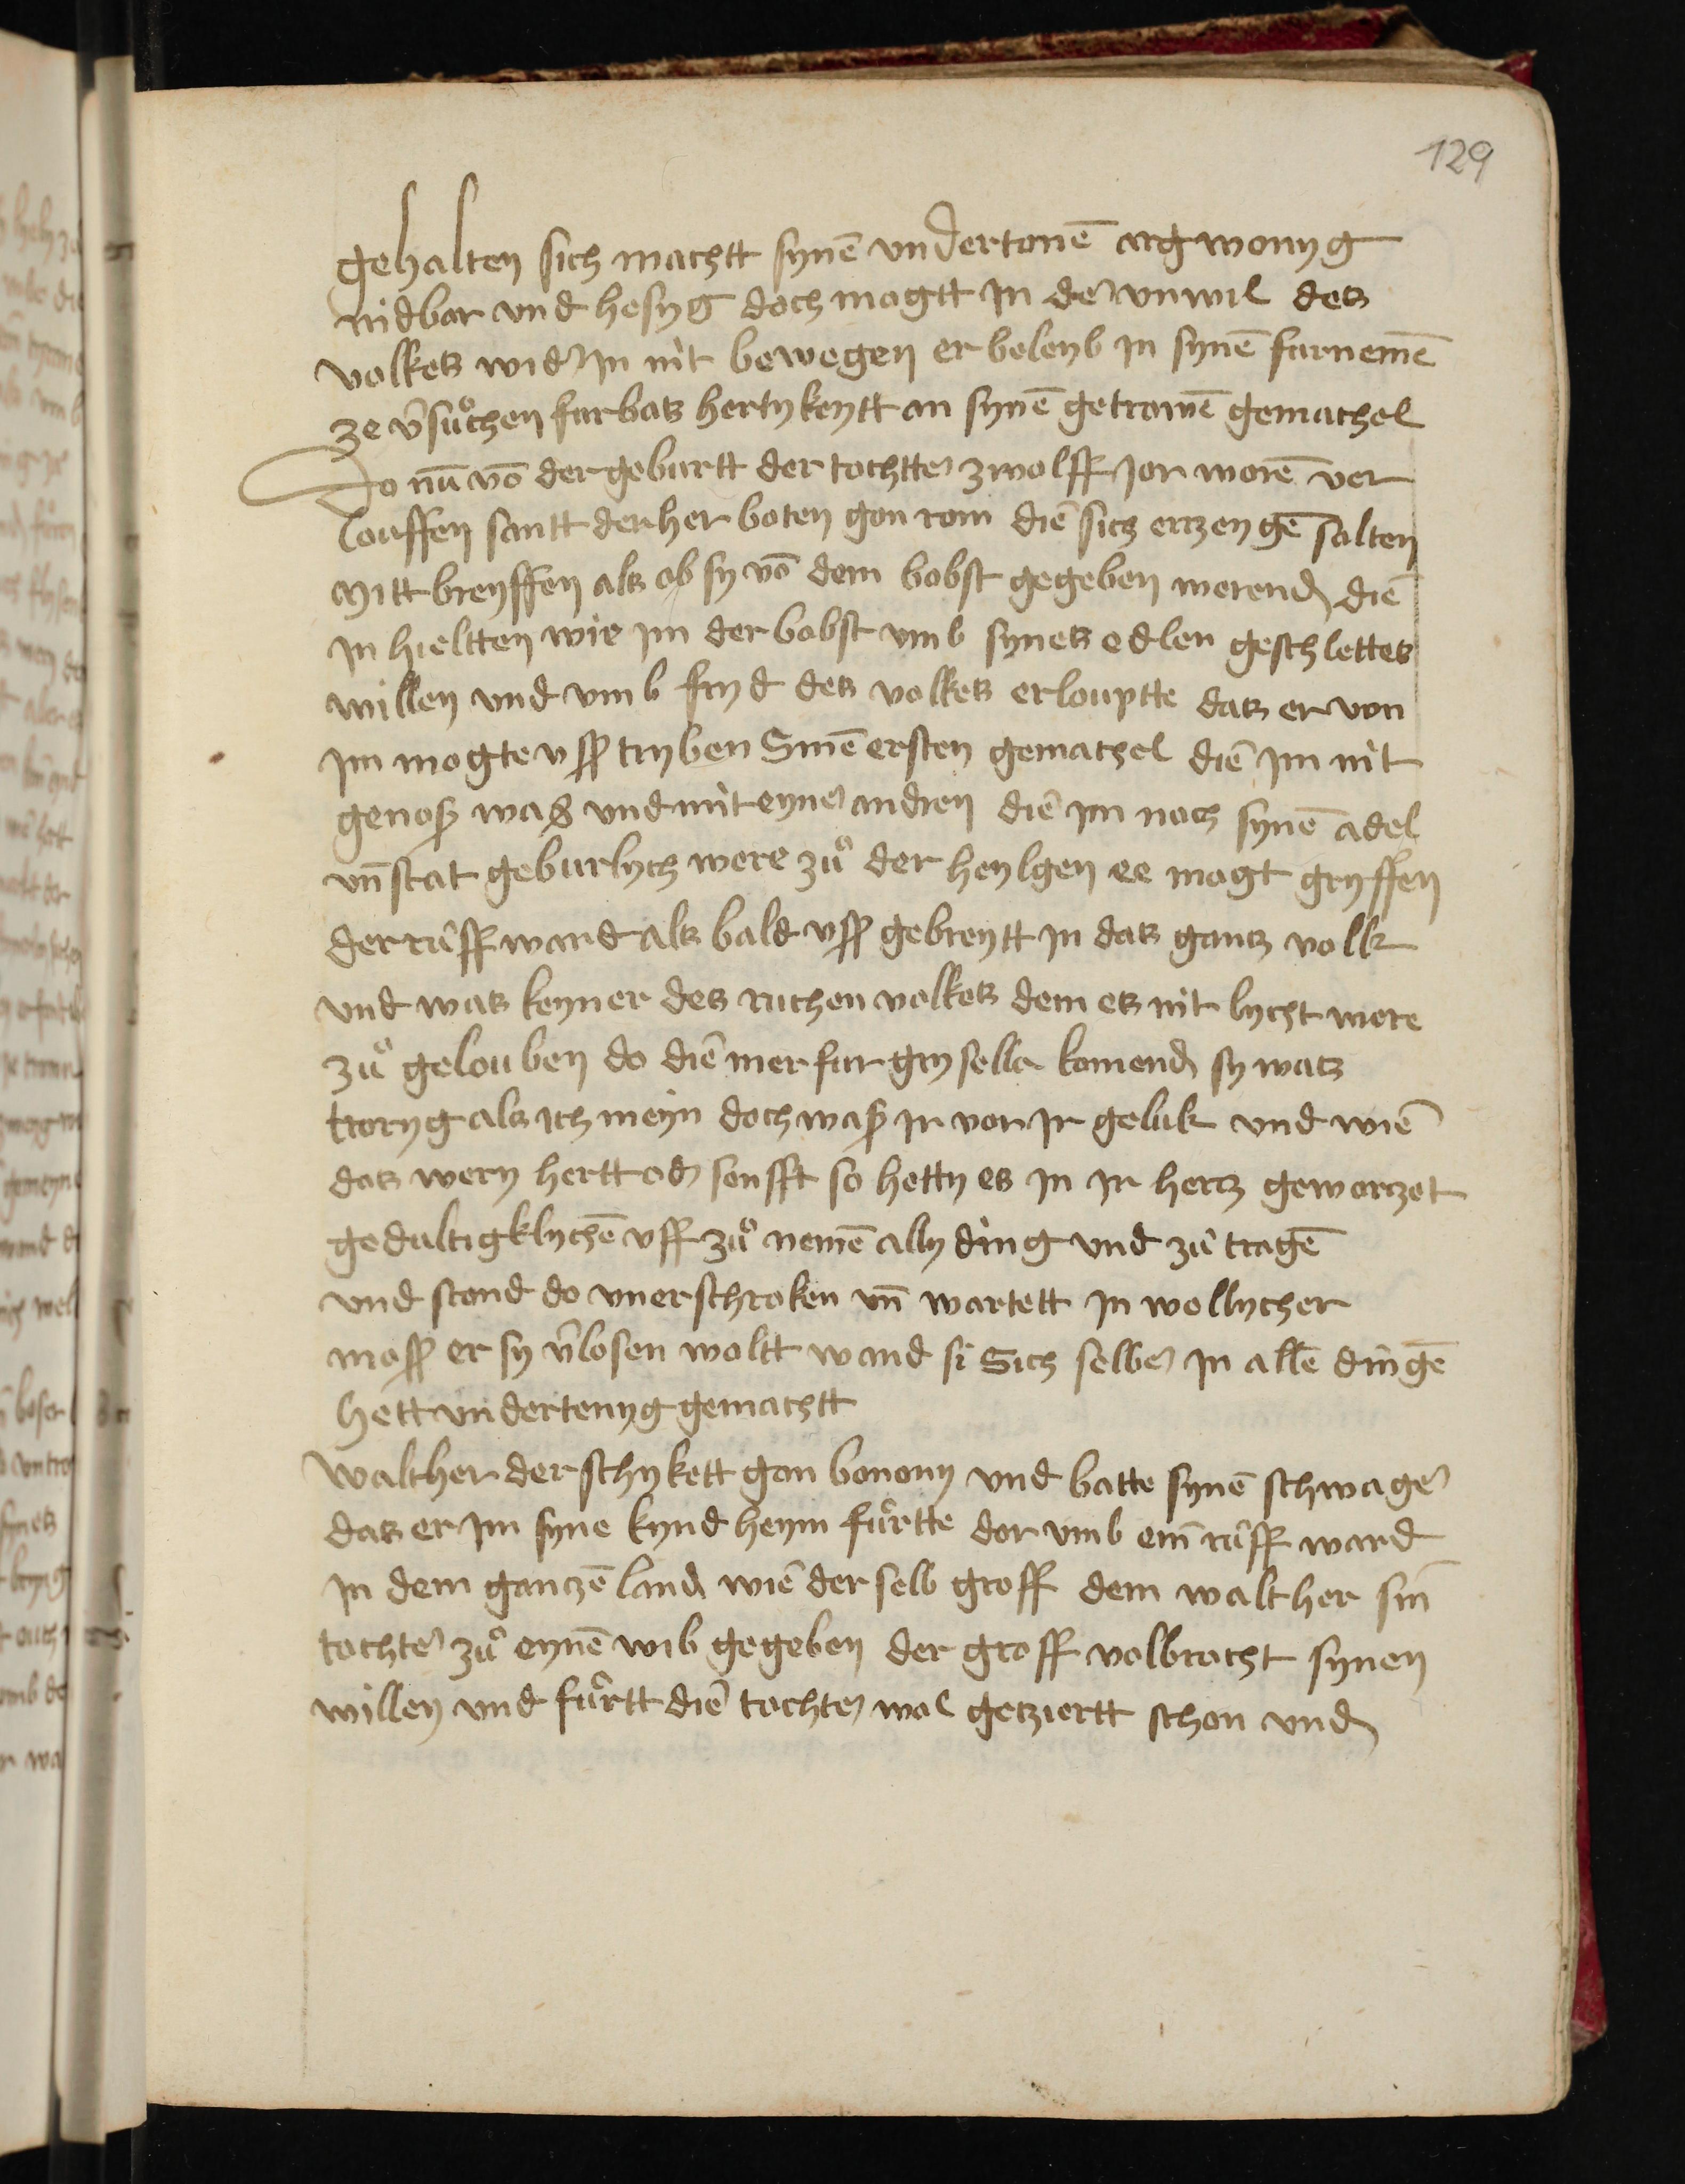 129
gehalten sich machtt synē vndertonē argwonyg
nidbar vnd hesyg doch mogtt in der vnwil des
volkes wider in nit bewegen er beleyb in synē furnemē
ze v̄suͦchen furbas hertykeytt an synē getrowē gemachel
Do nū vō der geburtt der tochtter zwolff jor worē ver
louffen santt der her boten gon rom die sich erzeygē solten
mitt breyffen als ob sy vō dem bobst gegeben werend die
in hieltten wie im der bobst vmb synes edlen geschlettes
willen vnd vmb fryd des volkes erlouptte das er von
im mogte vsz tryben Sinē ersten gemachel die im nit
genosz was vnd mit eyner andren die im noch synē adel
vn̄ stat geburlych were zuͦ der heylgen ee mogt gryffen
der ruff ward als bald vsz gebreytt in das gantz volk
vnd was keyner des ruchen volkes dem es nit lycht were
zuͦ gelouben do die mer fur grysella komend sy was
troryg als ich meyn doch wasz ir vor ir geluk vnd wie
das wery hertt oder senfft so hetty es in ir hertz geworzet
gedultigklychē vff zuͦ nemē ally ding vnd zu tragē
vnd stond do vnerschroken vn̄ wartett in wollycher
mosz er sy v̄losen woltt wand si Sich selber in allē dingē
hett vndertenyg gemachtt
Walther der schykett gon bonony vnd batte synē schwager
das er im syne kynd heym fuͦrtte dor vmb ein ruff ward
in dem gantzē land wie der selb groff dem walther sin
tochter zuͦ eynē wib gegeben der groff volbracht synen
willen vnd fuͦrtt die tochter wol getziertt schon vnd